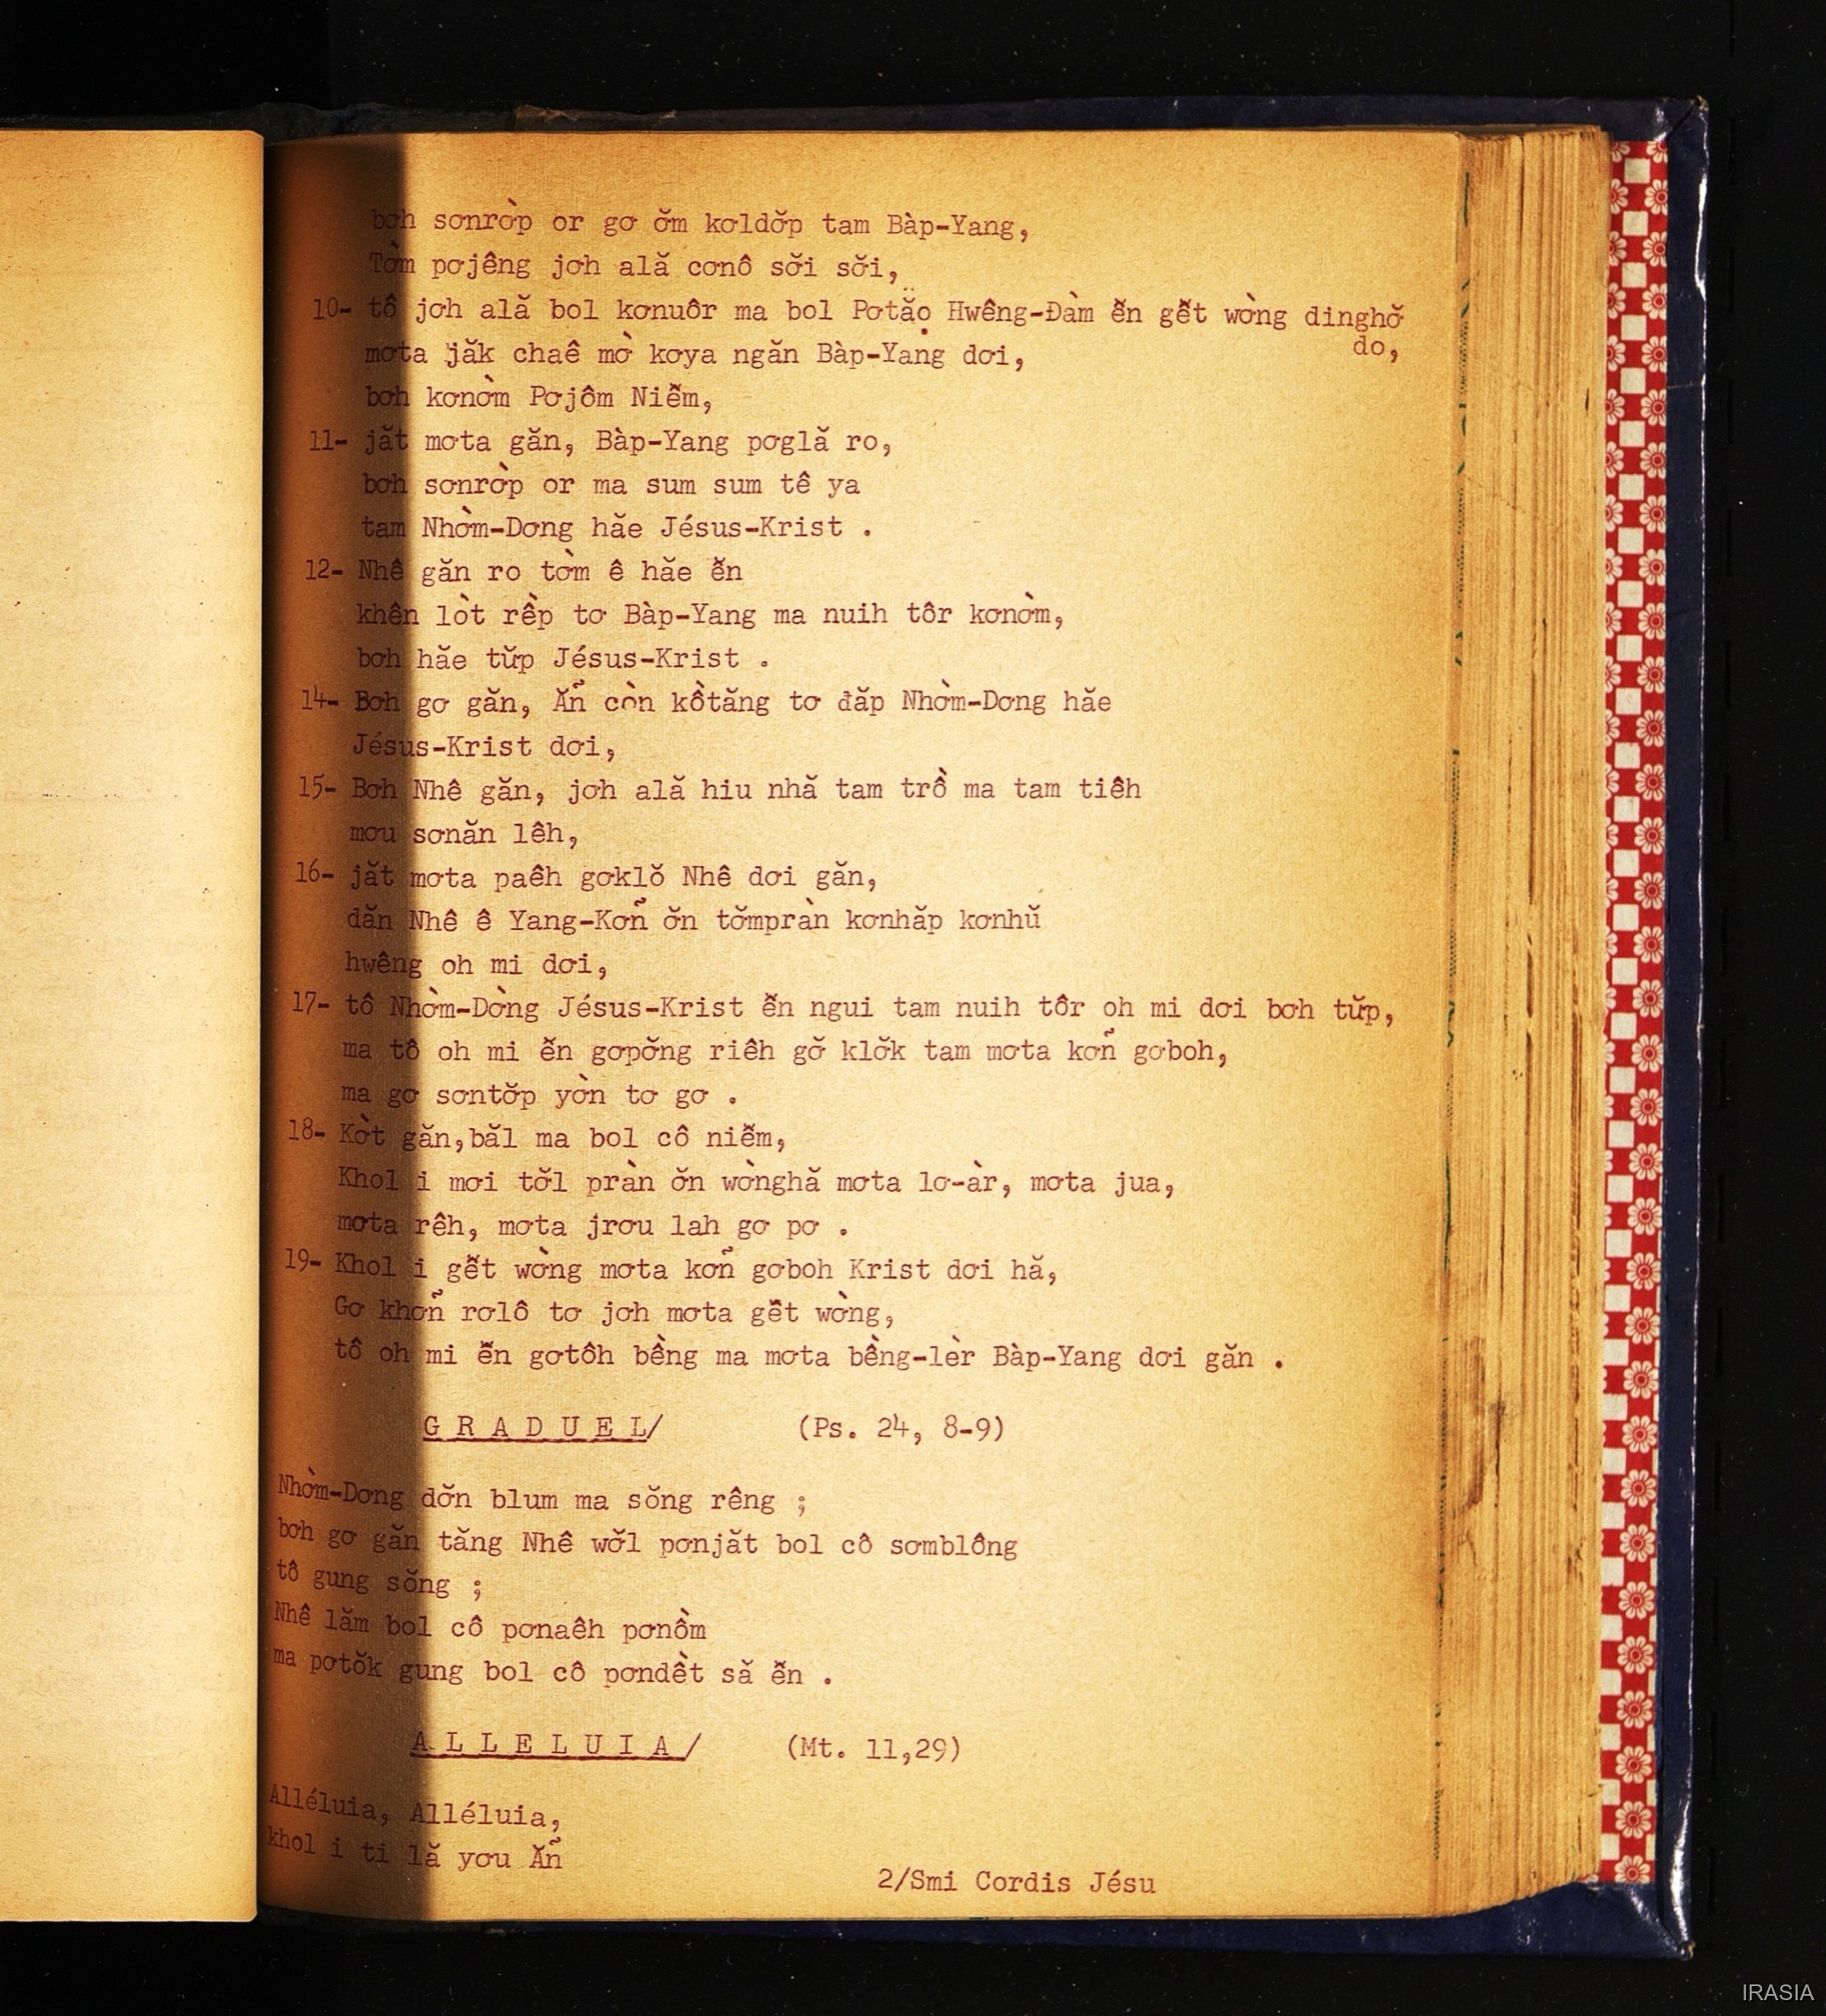 bơh sơnrờp or gơ ơ̆m kơldơ̆p tam Bàp-Yang,
Tờm pơjêng jơh ală cơnô sơ̆i sơ̆i,
10- tô jơh ală bol kơnuôr ma bol Pơtăọ Hwêng-Đàm ê̆n gê̆t wờng dinghơ̆ do,
mơta jăk chaê mờ kơya ngăn Bàp-Yang dơi,
bơh kơnờm Pơjôm Niê̆m,
11- jăt mơta găn, Bàp-Yang pơglă ro,
bơh sơnrờp or ma sum sum tê ya
tam Nhờm-Dơng hăe Jésus-Krist .
12- Nhê găn ro tờm ê hăe ê̆n
khên lòt rềp tơ Bàp-Yang ma nuih tôr kơnờm,
bơh hăe tŭp Jésus-Krist .
14- Bơh gơ găn, Ăñ còn kồtăng tơ đăp Nhờm-Dơng hăe
Jésus-Krist dơi,
15- Bơh Nhê găn, jơh ală hiu nhă tam trồ ma tam tiêh
mơu sơnăn lêh,
16- jăt mơta paêh gơklŏ Nhê dơi găn,
dăn Nhê ê Yang-Kơñ ơ̆n tơ̆mpràn kơnhăp kơnhŭ
hwêng oh mi dơi,
17- tô Nhờm-Dờng Jésus-Krist ê̆n ngui tam nuih tôr oh mi dơi bơh tŭp,
ma tô oh mi ê̆n gơpơ̆ng riêh gơ̆ klơ̆k tam mơta kơñ gơboh,
ma gơ sơntơ̆p yờn tơ gơ .
18- Kờt găn,băl ma bol cô niê̆m,
Khol i mơi tơ̆l pràn ơ̆n wờnghă mơta lơ-àr, mơta jua,
mơta rêh, mơta jrơu lah gơ pơ .
19- Khol i gê̆t wờng mơta kơñ gơboh Krist dơi hă,
Gơ khơñ rơlô tơ jơh mơta gê̆t wờng,
tô oh mi ê̆n gơtôh bềng ma mơta bềng-lèr Bàp-Yang dơi găn .
G R A D U E L/ (Ps. 24, 8-9)
Nhờm-Dơng dơ̆n blum ma sŏng rêng ;
bơh gơ găn tăng Nhê wơ̆l pơnjăt bol cô sơmblông
tô gung sŏng ;
Nhê lăm bol cô pơnaêh pơnồm
ma pơtŏk gung bol cô pơndềt să ê̆n .
A L L E L U I A/ (Mt. 11,29)
Alléluia, Alléluia,
khol i ti lă yơu Ăñ
2/Smi Cordis Jésu
IRASIA